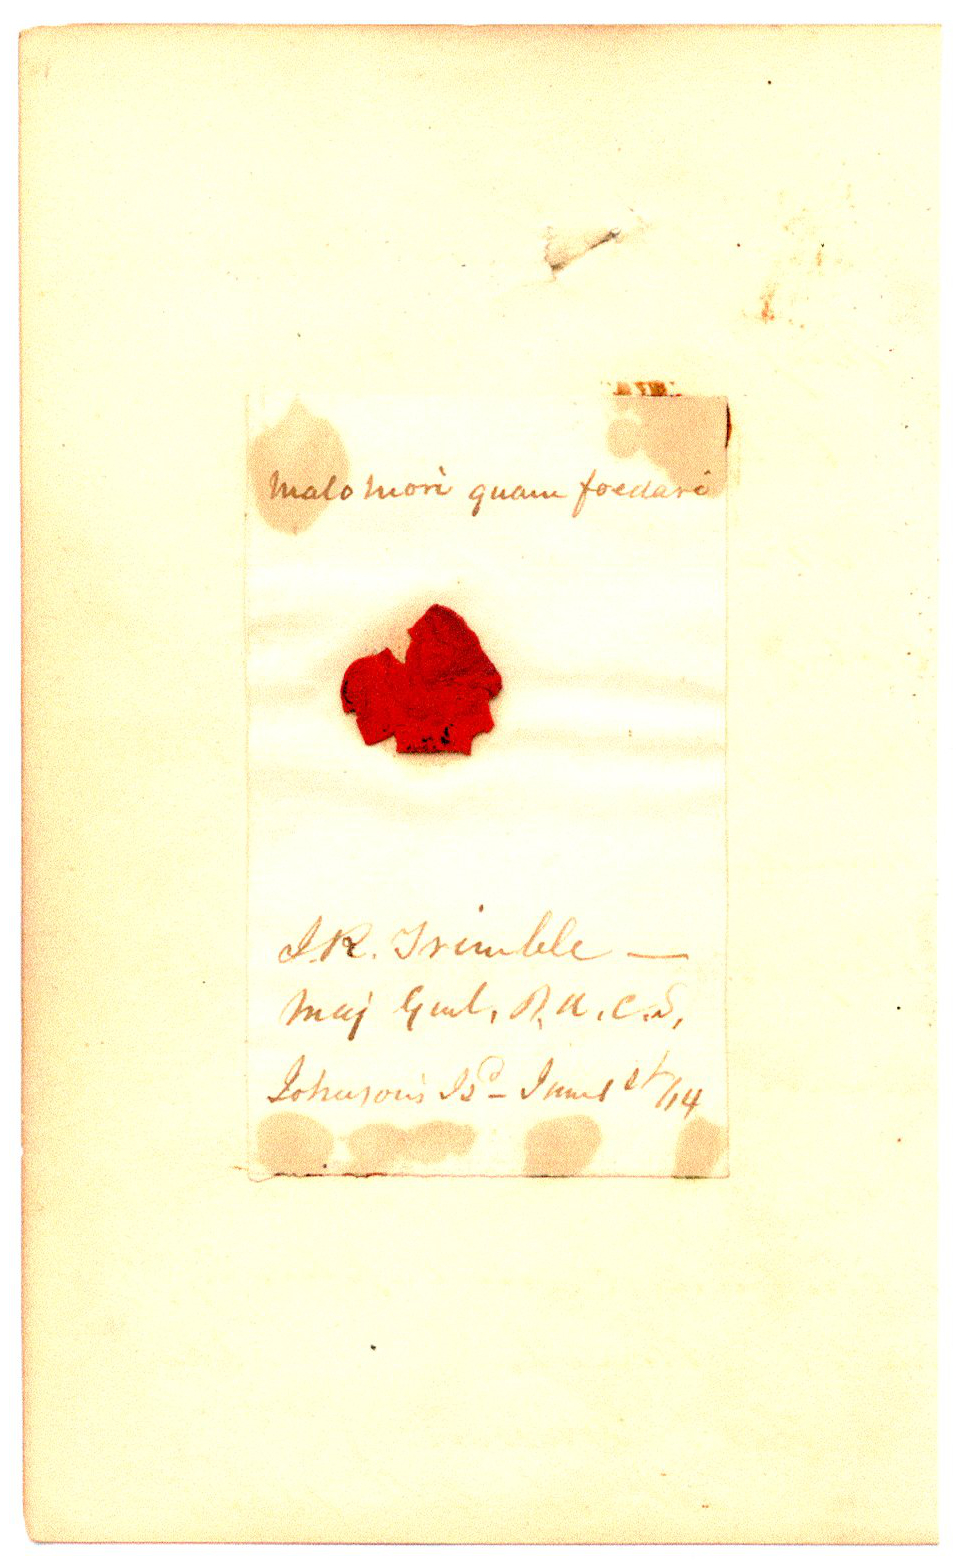 Malo mori quam foedari
I. R. Trimble —
Maj Genl, P. A. C. S,
Johnson's Isd - June 1st /64